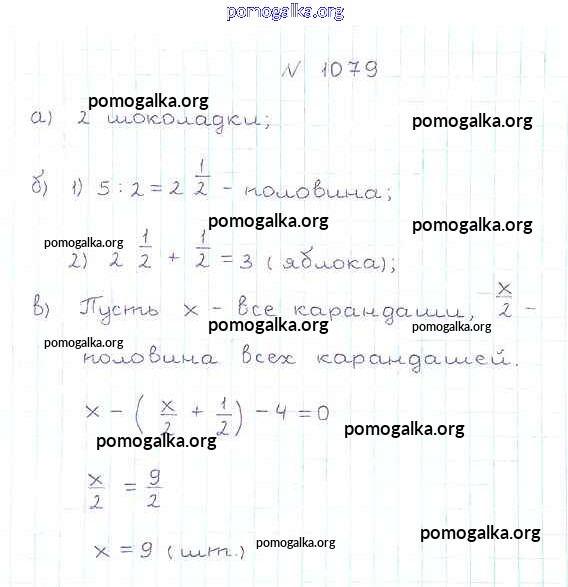 pomogalka.org
N 1079
pomogalka.org
а) 2 шоколадки;
pomogalka.org
б) 1) 5 : 2 = 2 1/2 - половина;
pomogalka.org
pomogalka.org
pomogalka.org
2) 2 1/2 + 1/2 = 3 (яблока);
в) Пусть x - все карандаши, x/2 -
pomogalka.org
pomogalka.org
pomogalka.org
половина всех карандашей.
x - (x/2 + 1/2) - 4 = 0
pomogalka.org
pomogalka.org
x/2 = 9/2
x = 9 (шт.)
pomogalka.org
pomogalka.org